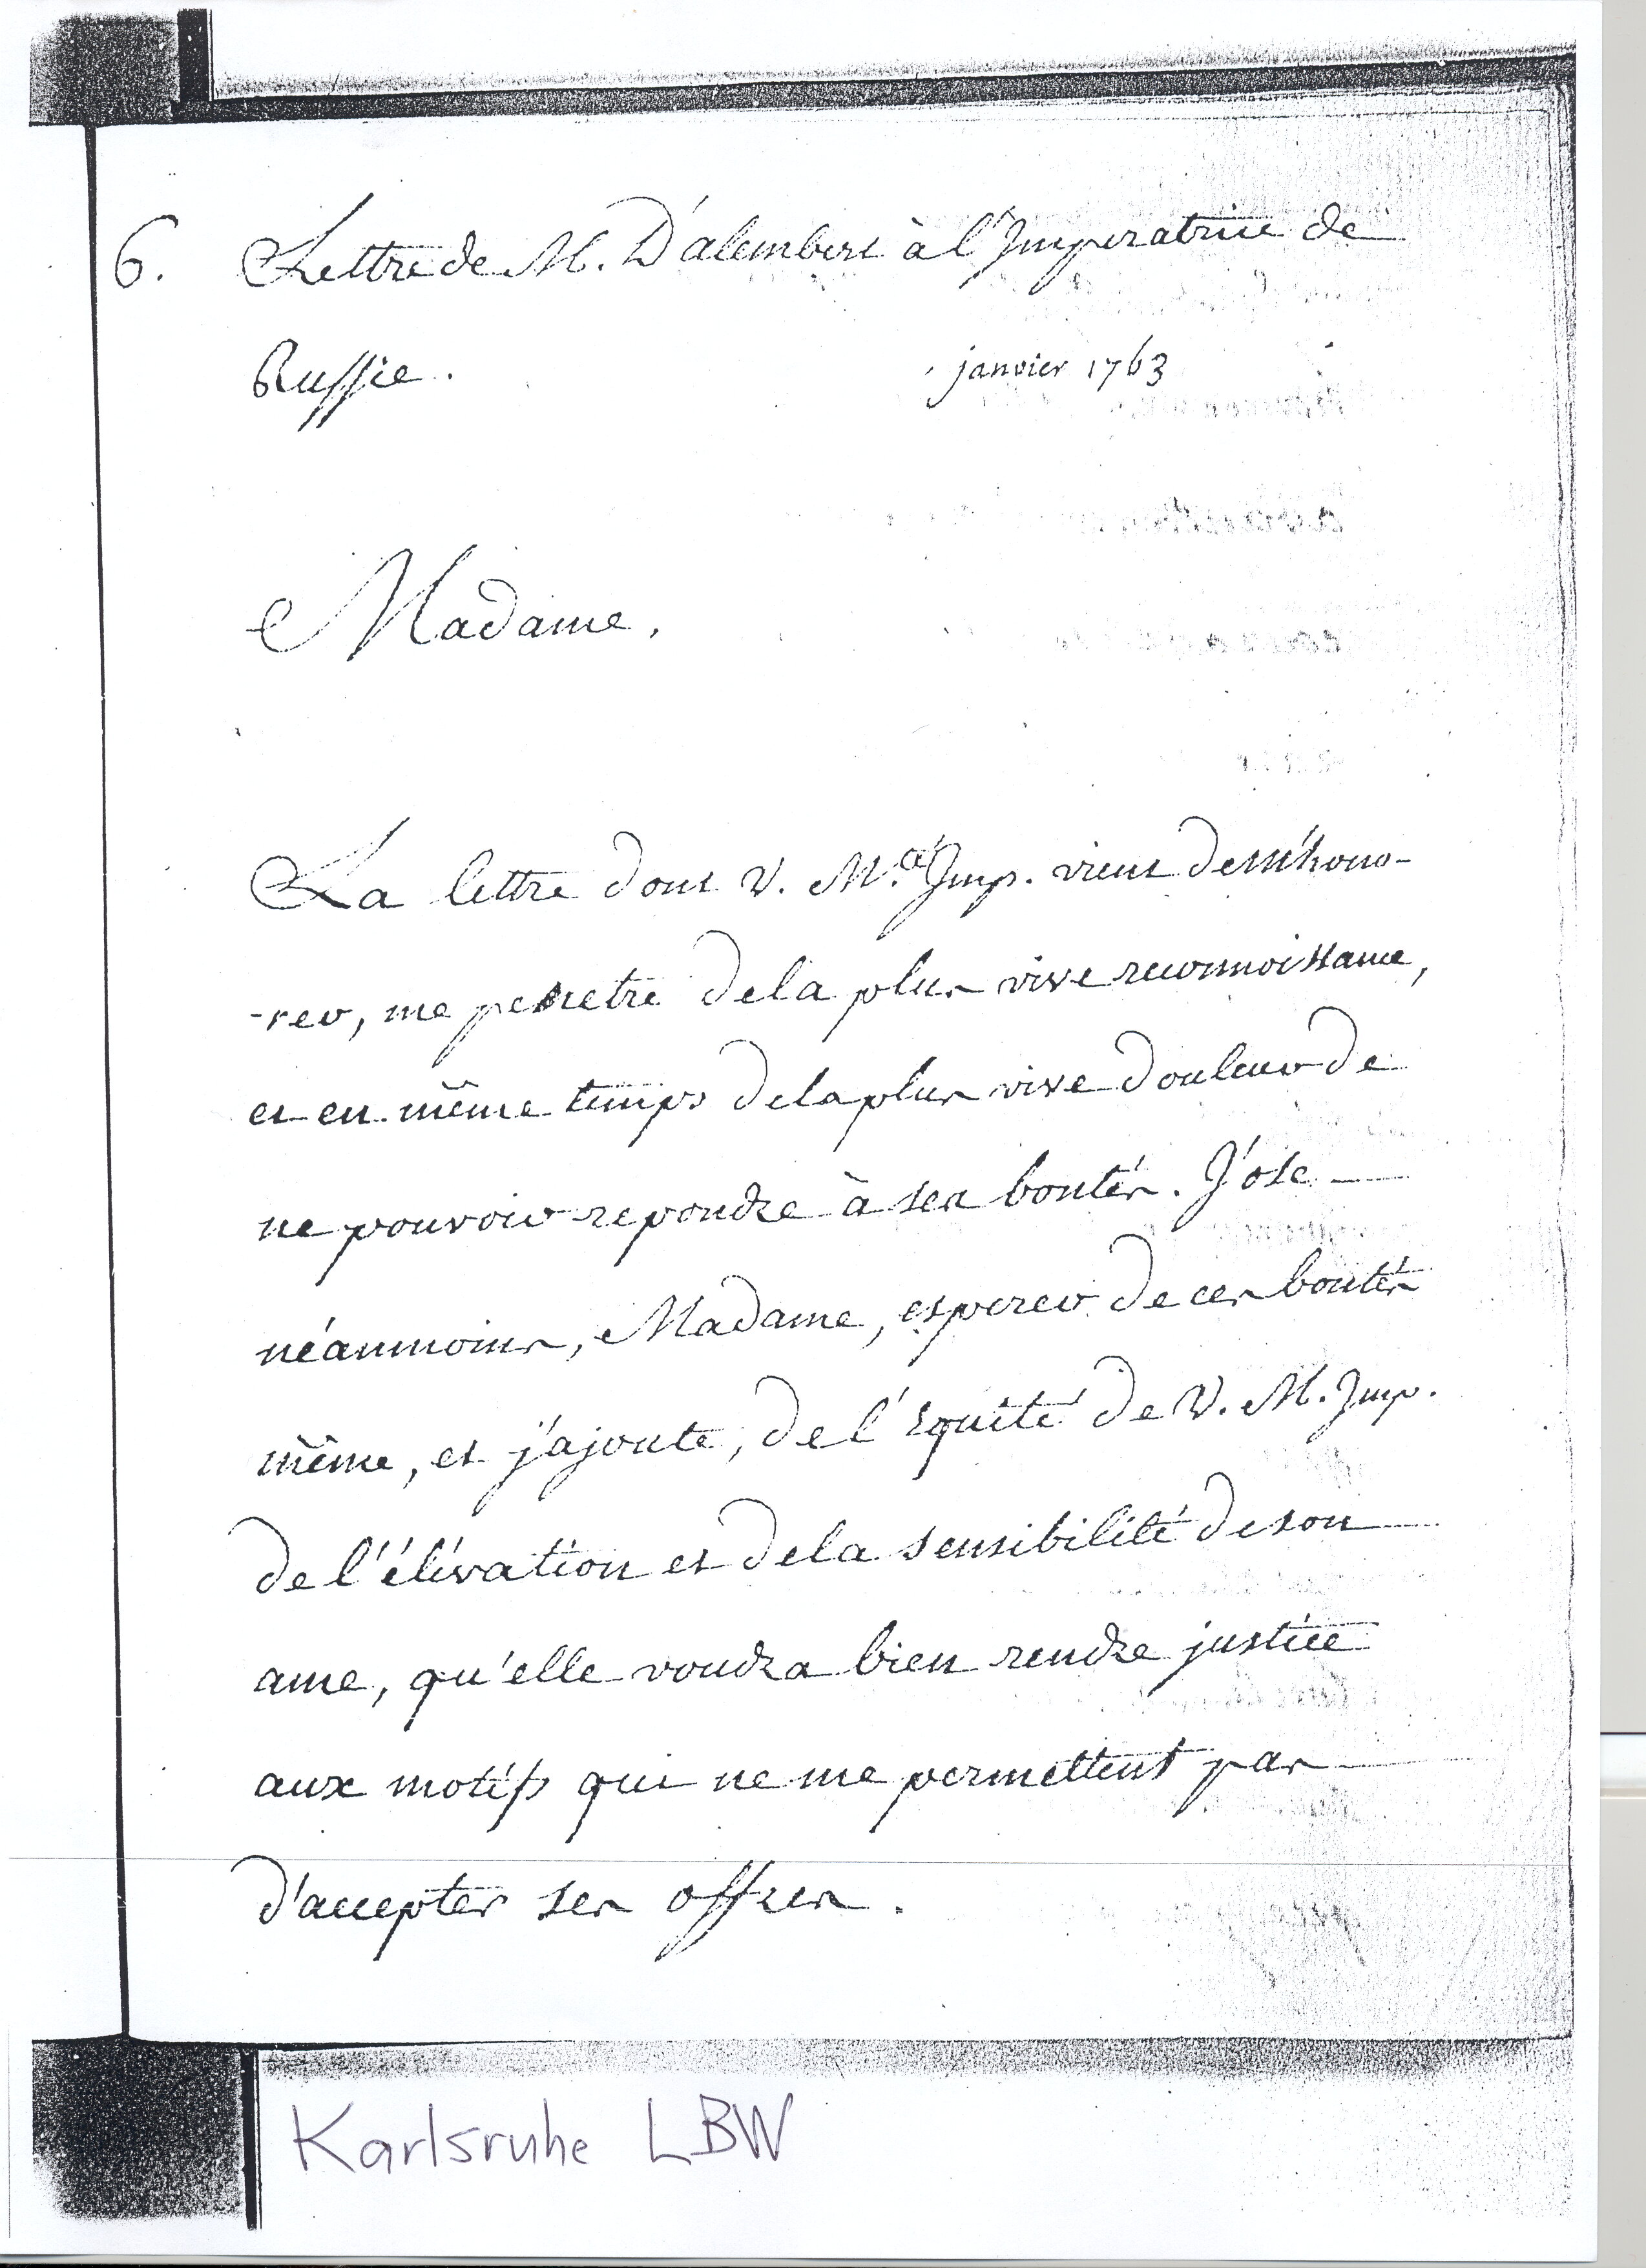 6. Lettre de M. D'alembert à l'Imperatrice de
Russie. janvier 1763
Madame,
La lettre dont V. M.té Imp. vient de m'hono-
-rer, me penetre de la plus vive reconnoissance,
et en même temps de la plus vive douleur de
ne pouvoir repondre à ses bontés. J'ose
néanmoins, Madame, esperer de ces bontés
même, et j'ajoute, de l'équité de V. M. Imp.
de l'élévation et de la sensibilité de son
ame, qu'elle voudra bien rendre justice
aux motifs qui ne me permettent pas
d'accepter ses offres.
Karlsruhe LBW